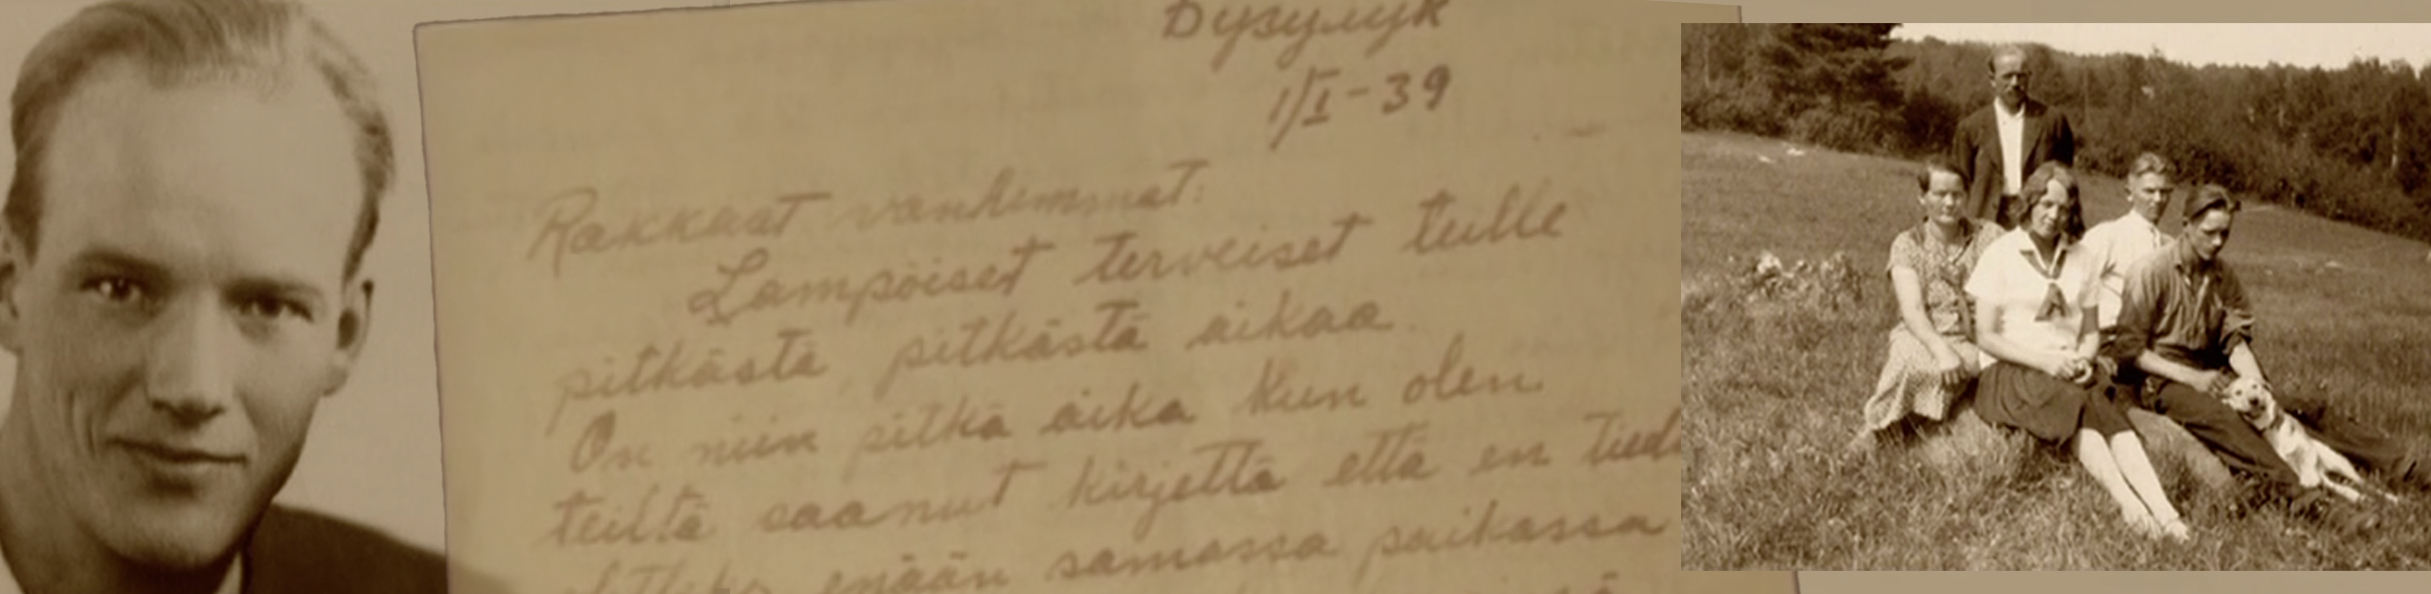 Бузулук
1/I-39
Rakkaat vanhemmat:
Lämpöiset terveiset teille
pitkästä, pitkästä aikaa.
On niin pitkä aika kun olen
teiltä saanut kirjettä että en tiedä
enään samassa paikassa